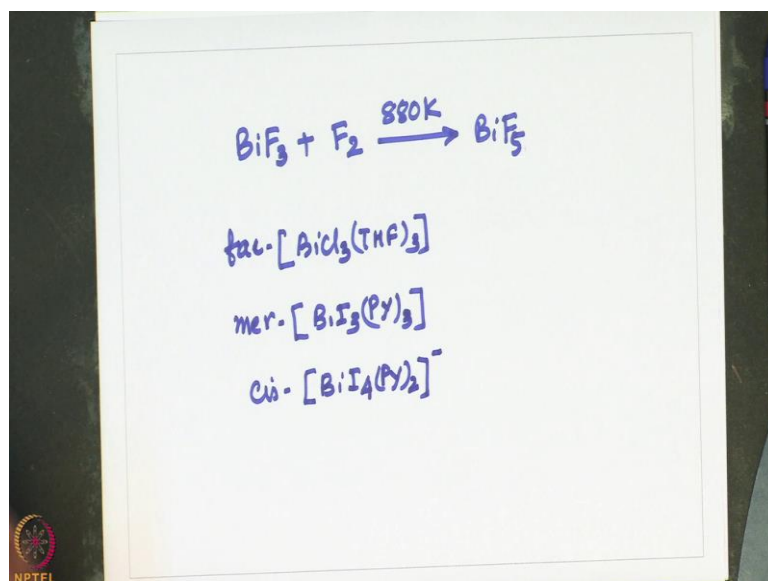 BiF₃ + F₂ —880K→ BiF₅
fac-[BiCl₃(THF)₃]
mer-[BiI₃(Py)₃]
cis-[BiI₄(Py)₂]⁻
NPTEL